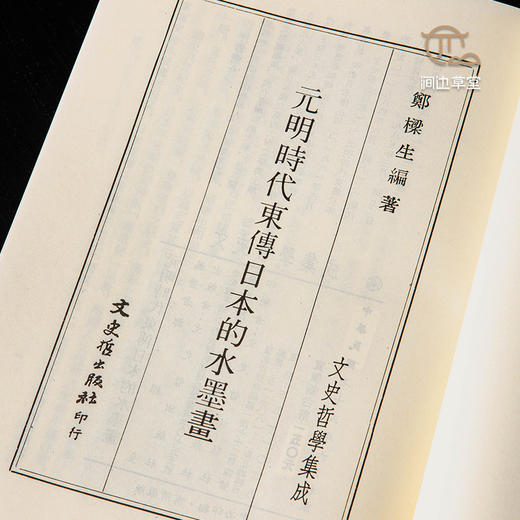 鄭樑生編著
文史哲學集成
元明時代東傳日本的水墨畫
文史哲出版社印行
澗边草堂